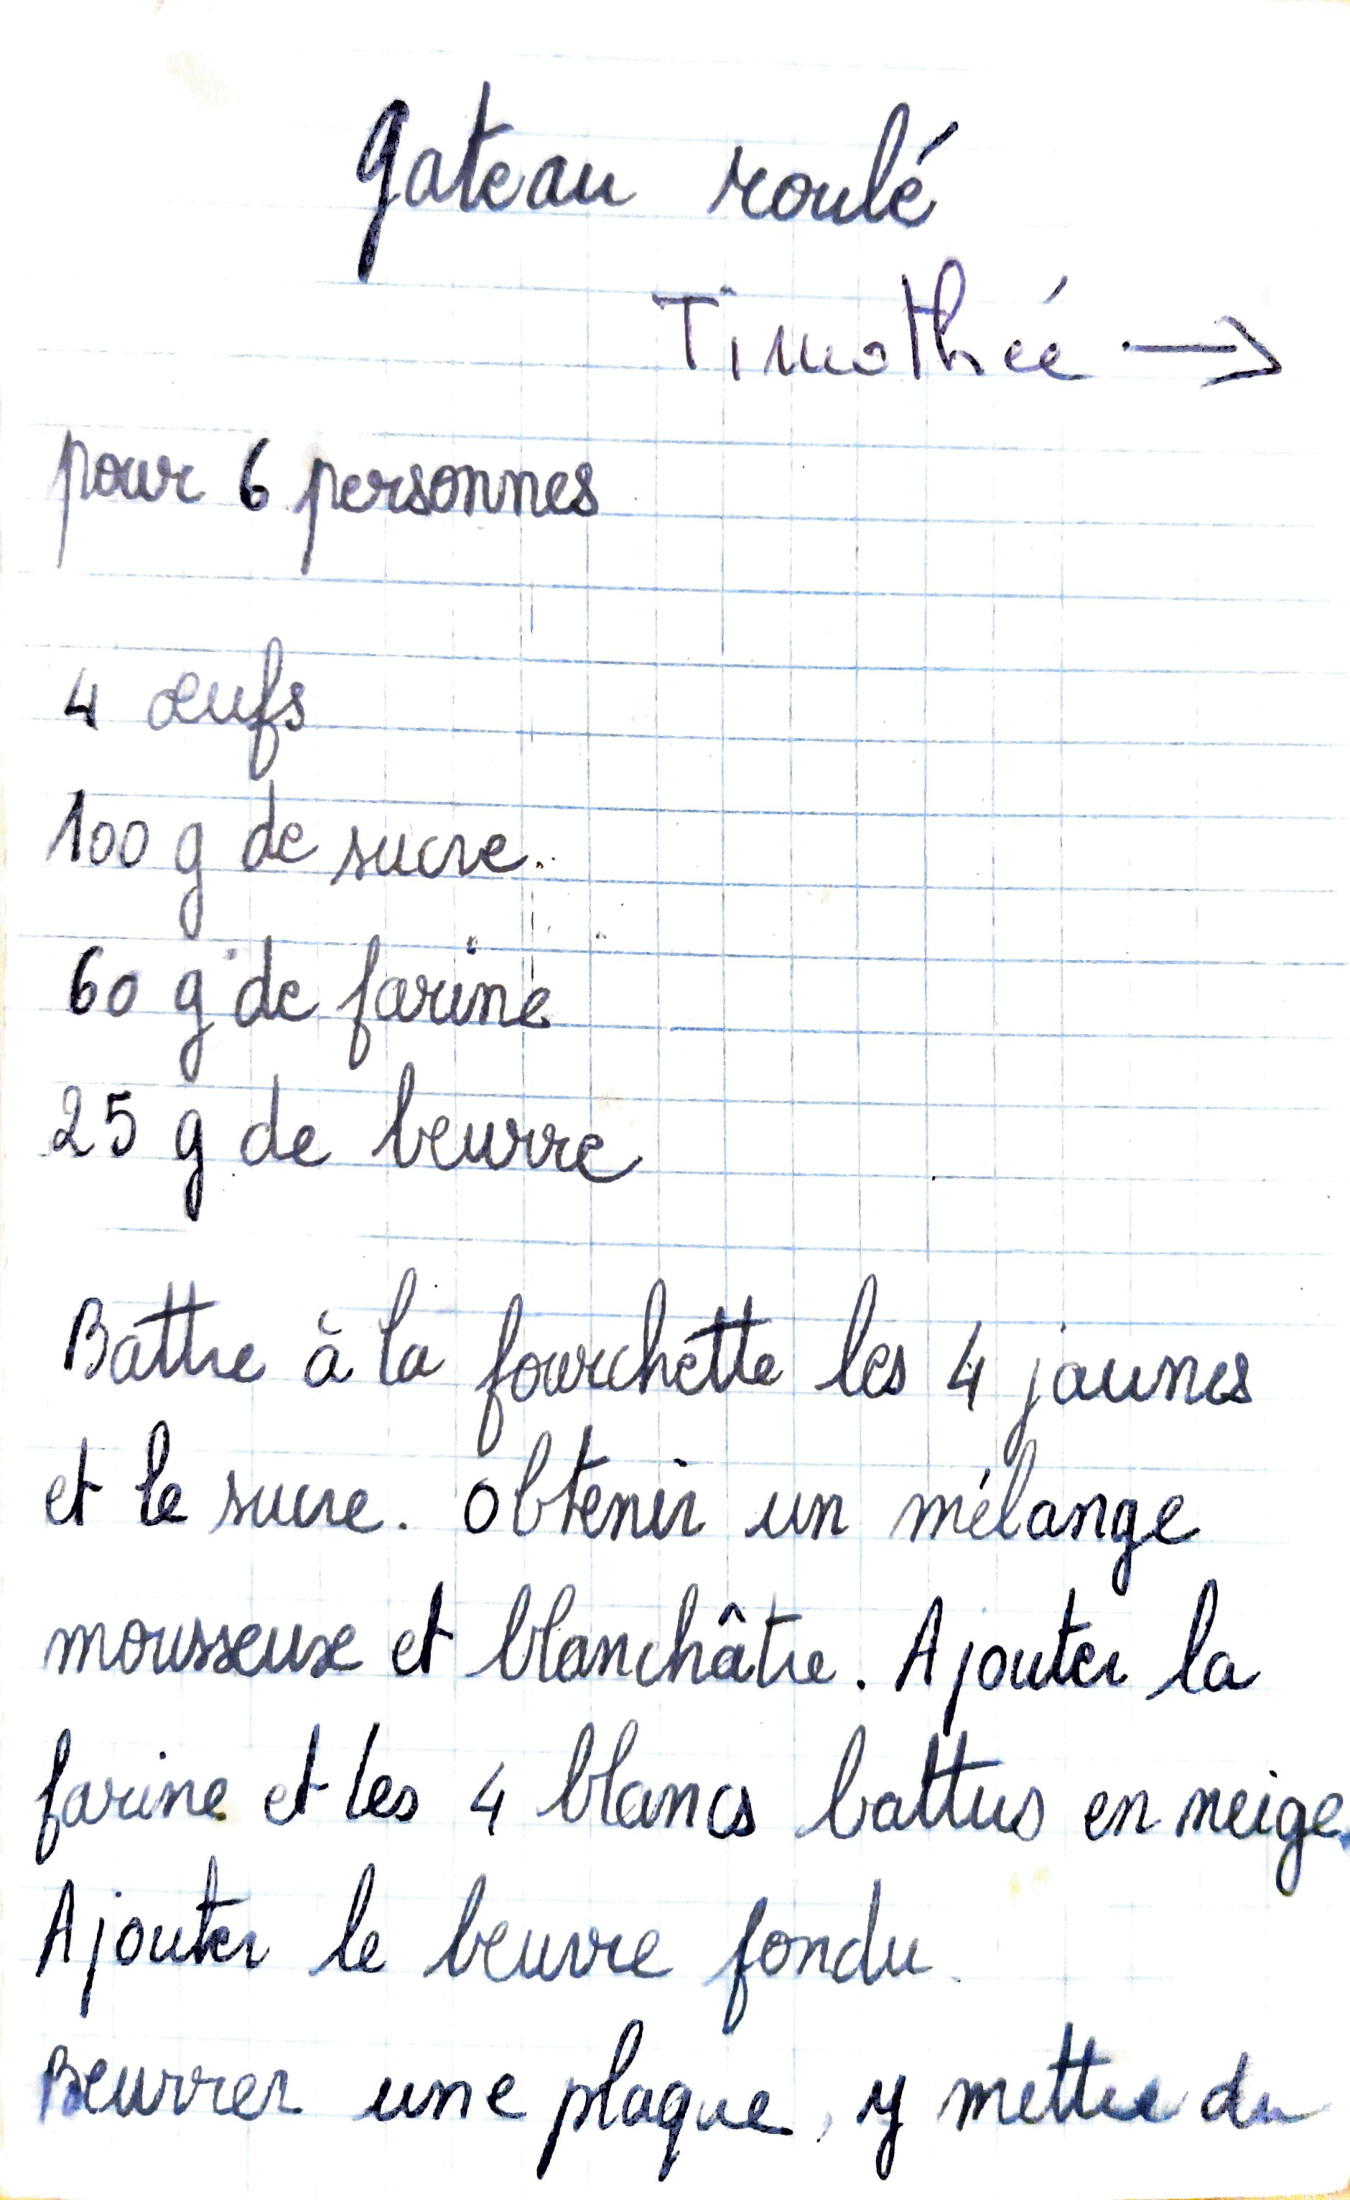 gateau roulé
Timothée →
pour 6 personnes
4 œufs
100 g de sucre.
60 g de farine
25 g de beurre
Battre à la fourchette les 4 jaunes
et le sucre. Obtenir un mélange
mousseux et blanchâtre. Ajouter la
farine et les 4 blancs battus en neige.
Ajouter le beurre fondu.
Beurrer une plaque, y mettre du